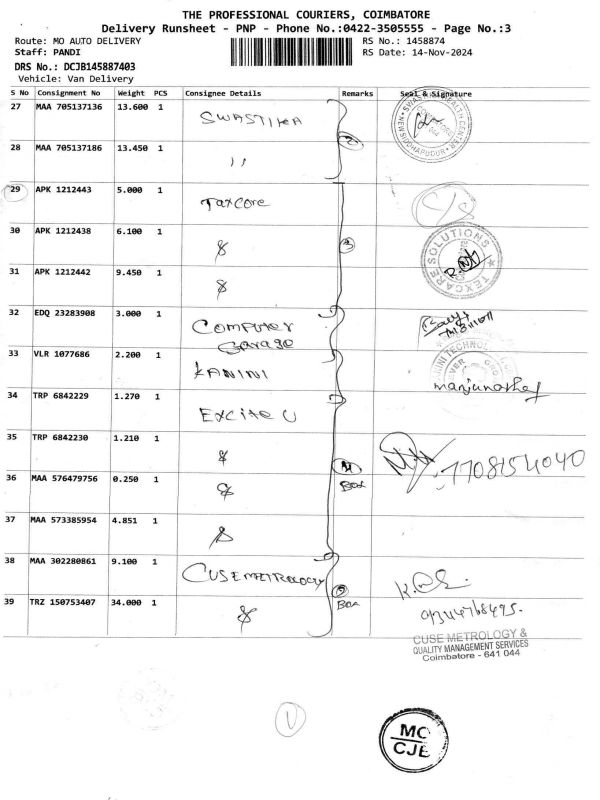 THE PROFESSIONAL COURIERS, COIMBATORE
Delivery Runsheet - PNP - Phone No.:0422-3505555 - Page No.:3
Route: MO AUTO DELIVERY RS No.: 1458874
Staff: PANDI RS Date: 14-Nov-2024
DRS No.: DCJB145887403
Vehicle: Van Delivery
S No Consignment No Weight PCS Consignee Details Remarks Seal & Signature
27 MAA 705137136 13.600 1 SWASTIKA
28 MAA 705137186 13.450 1 "
29 APK 1212443 5.000 1 Taxcore
30 APK 1212438 6.100 1 3
31 APK 1212442 9.450 1
TEXCARE SOLUTIONS
32 EDQ 23283908 3.000 1 Computer
Garage
33 VLR 1077686 2.200 1 KANINI
34 TRP 6842229 1.270 1 Excite U
35 TRP 6842230 1.210 1
7708154040
36 MAA 576479756 0.250 1 BOX
37 MAA 573385954 4.851 1
38 MAA 302280861 9.100 1 CUSEMETROLOGY
39 TRZ 150753407 34.000 1 BOX
CUSE METROLOGY &
QUALITY MANAGEMENT SERVICES
Coimbatore - 641 044
MC
CJE